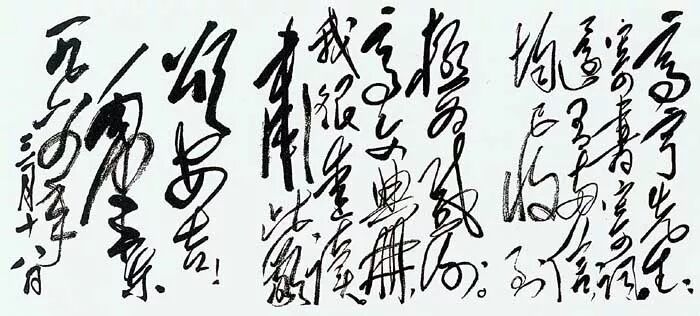 高亨先生：
寄书寄词，
还有两信，
均已收到，
极为感谢。
高文典册，
我很爱读。
肃此。敬
颂安吉！
毛泽东
一九六四年
三月十八日